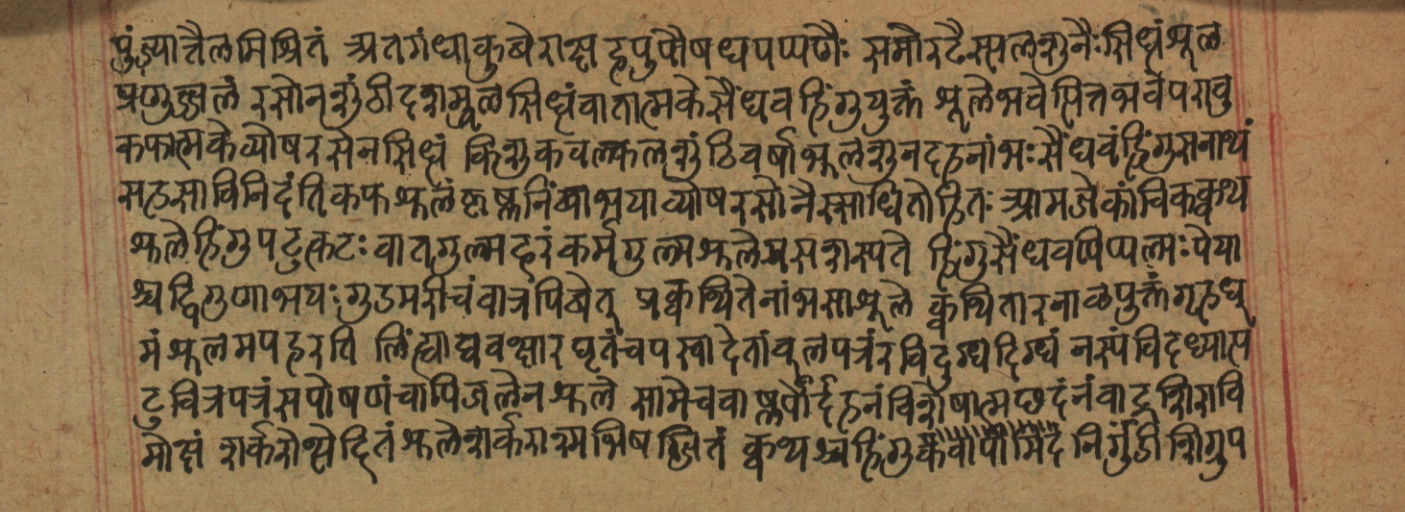 पुंड्यात्तैलमिश्रितं अतगंधाकुबेराक्ष हपुषौषधपप्पणैः समौरटैस्सलशुनैःसिद्धंशूल
प्रणुज्जलं रसोनशुंठीदशमूलसिद्धंवातात्मकेसैंधवहिंगुयुक्तं शूलेभवेत्पित्तभवेपरावु
कफात्मकेव्योषरसेनसिद्धं किंशुकवल्कलशुंठिवर्षाभूलशुनदहनांभःसैंधवंहिंगुसनाथं
सहसाविनिदंतिकफशूलं कृष्णनिंबाभयाव्योषरसोनैस्साधितोहितः आमजेकांविकक्वथ
शूलेहिंगुपटुत्कटः वातगुल्महरंकर्मगुल्मशूलेप्रसशस्पते हिंगुसैंधवपिप्पल्मःपेया
श्चद्विगुणाभयः गुडमरीचंवात्रंपिबेत् प्रक्वथितेनांभसाशूले क्वथितारनाळपुक्तंगृहधू
मंशूलमपहरति लिंह्याद्यवक्षारघृतंचपस्वादेतांबूलपत्रंरविदुग्धदिग्धं नस्पंविदध्यात्प
टुवित्रपत्रंसपोषणंचापिजलेनशूले सामेचवाष्णपोर्दहनंविशेषात्मछदंनंवाद्रशिरावि
मोक्षं शर्करोत्थेदितंशूलेशर्कराश्मभिषज्जितं क्वथश्चहिंगु निर्गुंडीशिग्रुप